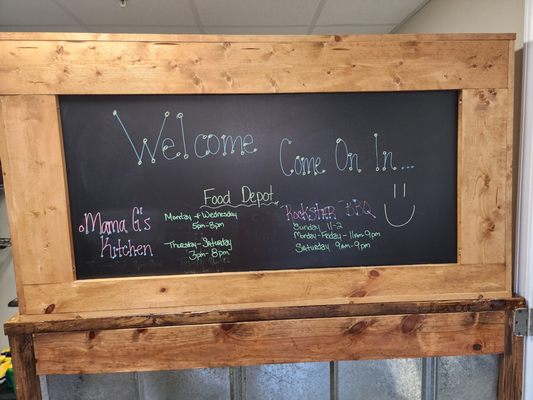 Welcome
Come On In...
Mama G's
Kitchen
Food Depot
Monday + Wednesday
5pm-8pm
Thursday - Saturday
3pm-8pm
Rockstar BBQ
Sunday 11-2
Monday-Friday-11am-9pm
Saturday 9am-9pm